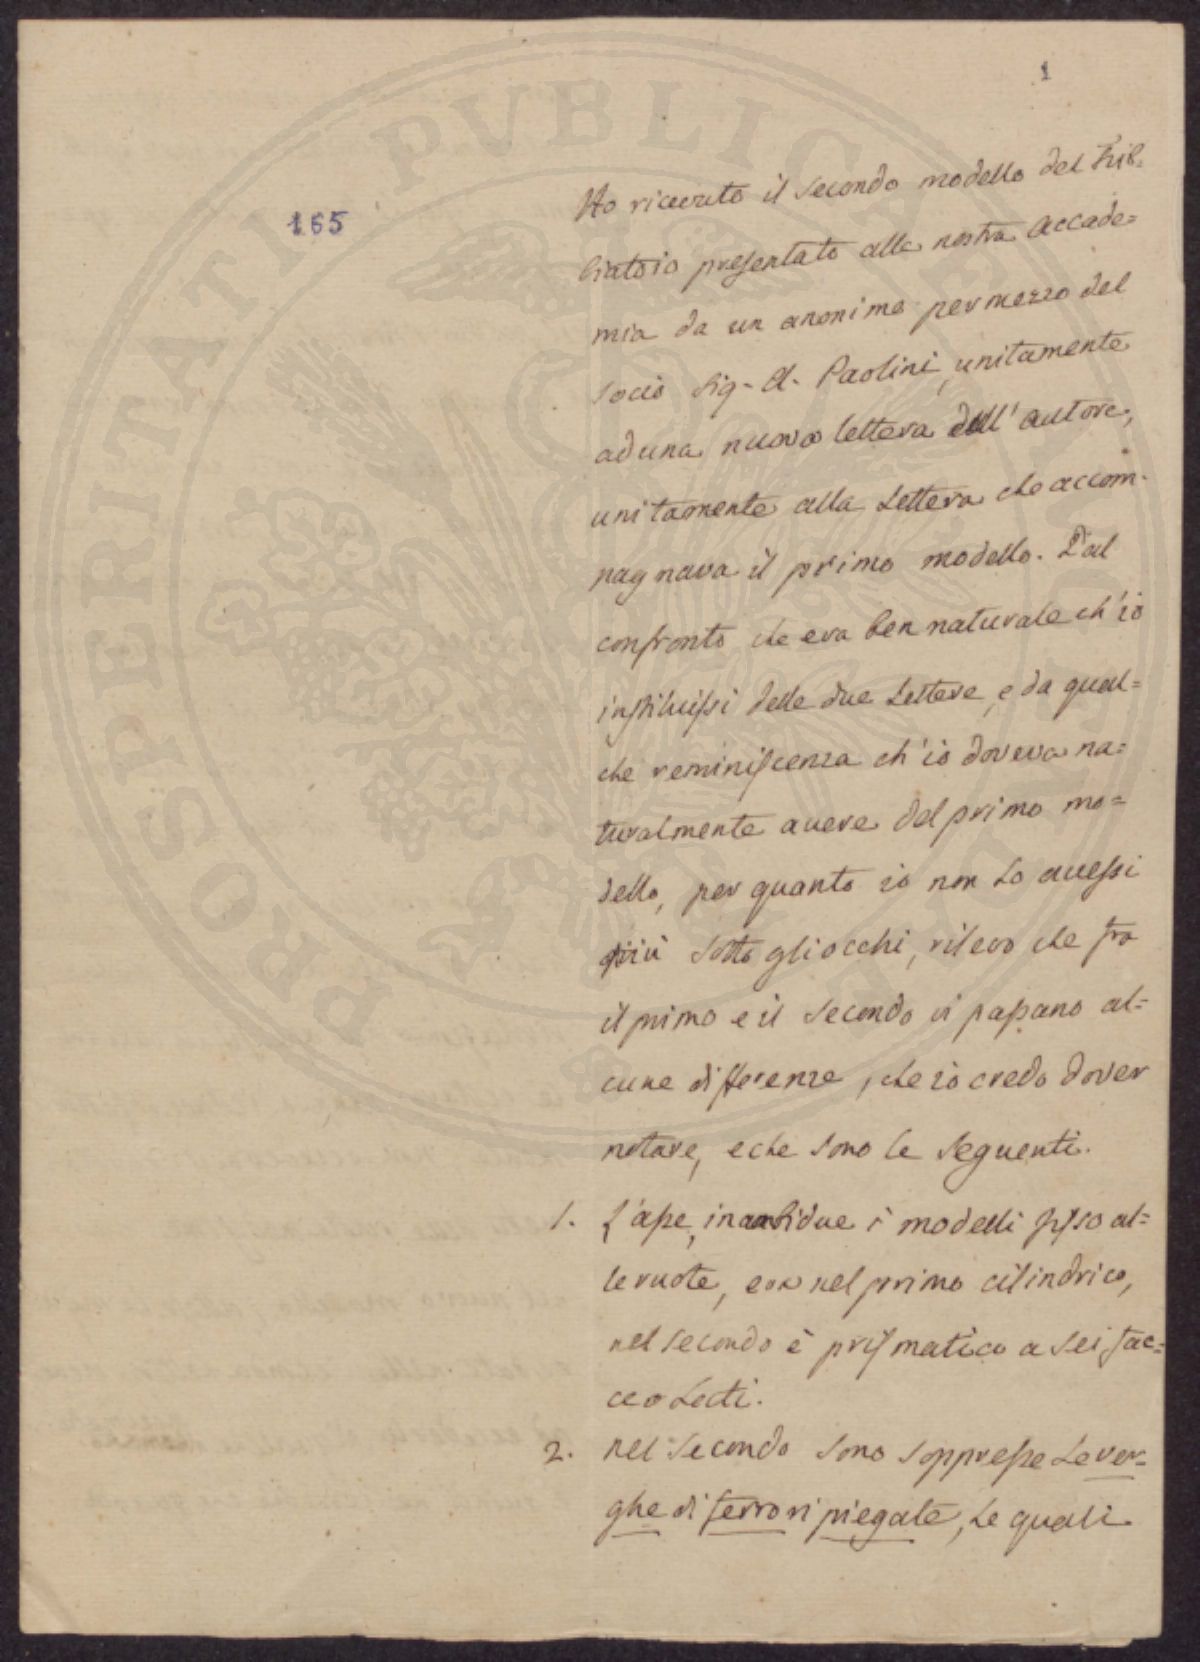 1
165
Ho ricevuto il secondo modello del Trib-
biatoio presentato alla nostra Accade=
mia da un anonimo per mezzo del
socio Sig. A. Paolini, unitamente
ad una nuova lettera dell'autore,
unitamente alla Lettera che accom-
pagnava il primo modello. Dal
confronto che era ben naturale ch'io
instituissi delle due Lettere, e da qual=
che reminiscenza ch'io doveva na=
turalmente avere del primo mo=
dello, per quanto io non Lo avessi
più sotto gli occhi, rilevo che fra
il primo e il secondo vi passano al=
cune differenze, che io credo dover
notare, e che sono le seguenti.
1. L'asse, in ambidue i modelli fisso al=
le ruote, era nel primo cilindrico,
nel secondo è prismatico a sei fac=
ce o Lati.
2. nel secondo sono soppresse Le ver=
ghe di ferro ripiegate, Le quali
PROSPERITATI PUBLICAE AUGENDAE